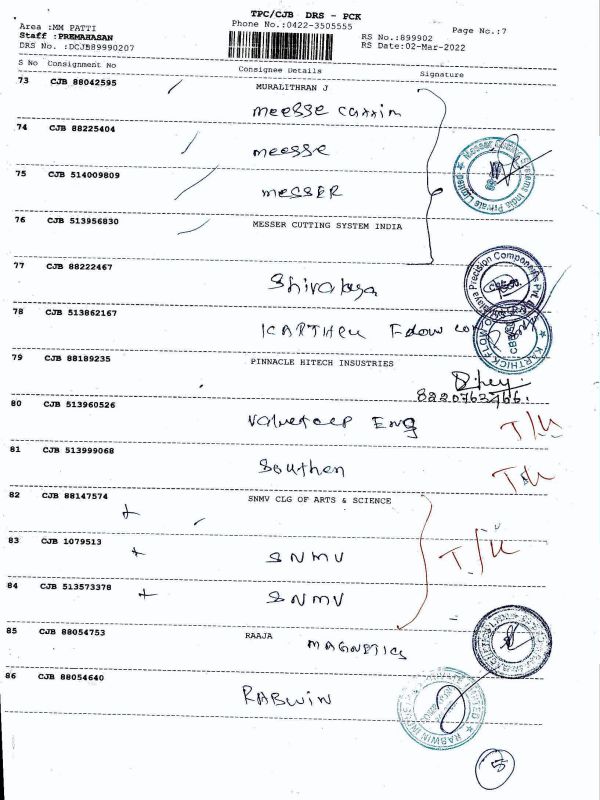 TPC/CJB DRS - PCK
Area :MM PATTI Phone No.:0422-3505555 Page No.:7
Staff :PREMAHASAN RS No.:899902
DRS No. :DCJB89990207 RS Date:02-Mar-2022
S No Consignment No Consignee Details Signature
73 CJB 88042595 MURALITHRAN J
meesse
74 CJB 88225404
meesse
75 CJB 514009809
messER
76 CJB 513956830 MESSER CUTTING SYSTEM INDIA
77 CJB 88222467
Shivalaya
78 CJB 513862167
79 CJB 88189235 PINNACLE HITECH INSUSTRIES
80 CJB 513960526
Eng T/K
81 CJB 513999068
Southen T/K
82 CJB 88147574 SNMV CLG OF ARTS & SCIENCE
83 CJB 1079513
SNMV T/K
84 CJB 513573378
SNMV
85 CJB 88054753 RAAJA MAGNETICS
86 CJB 88054640
RABWIN
5